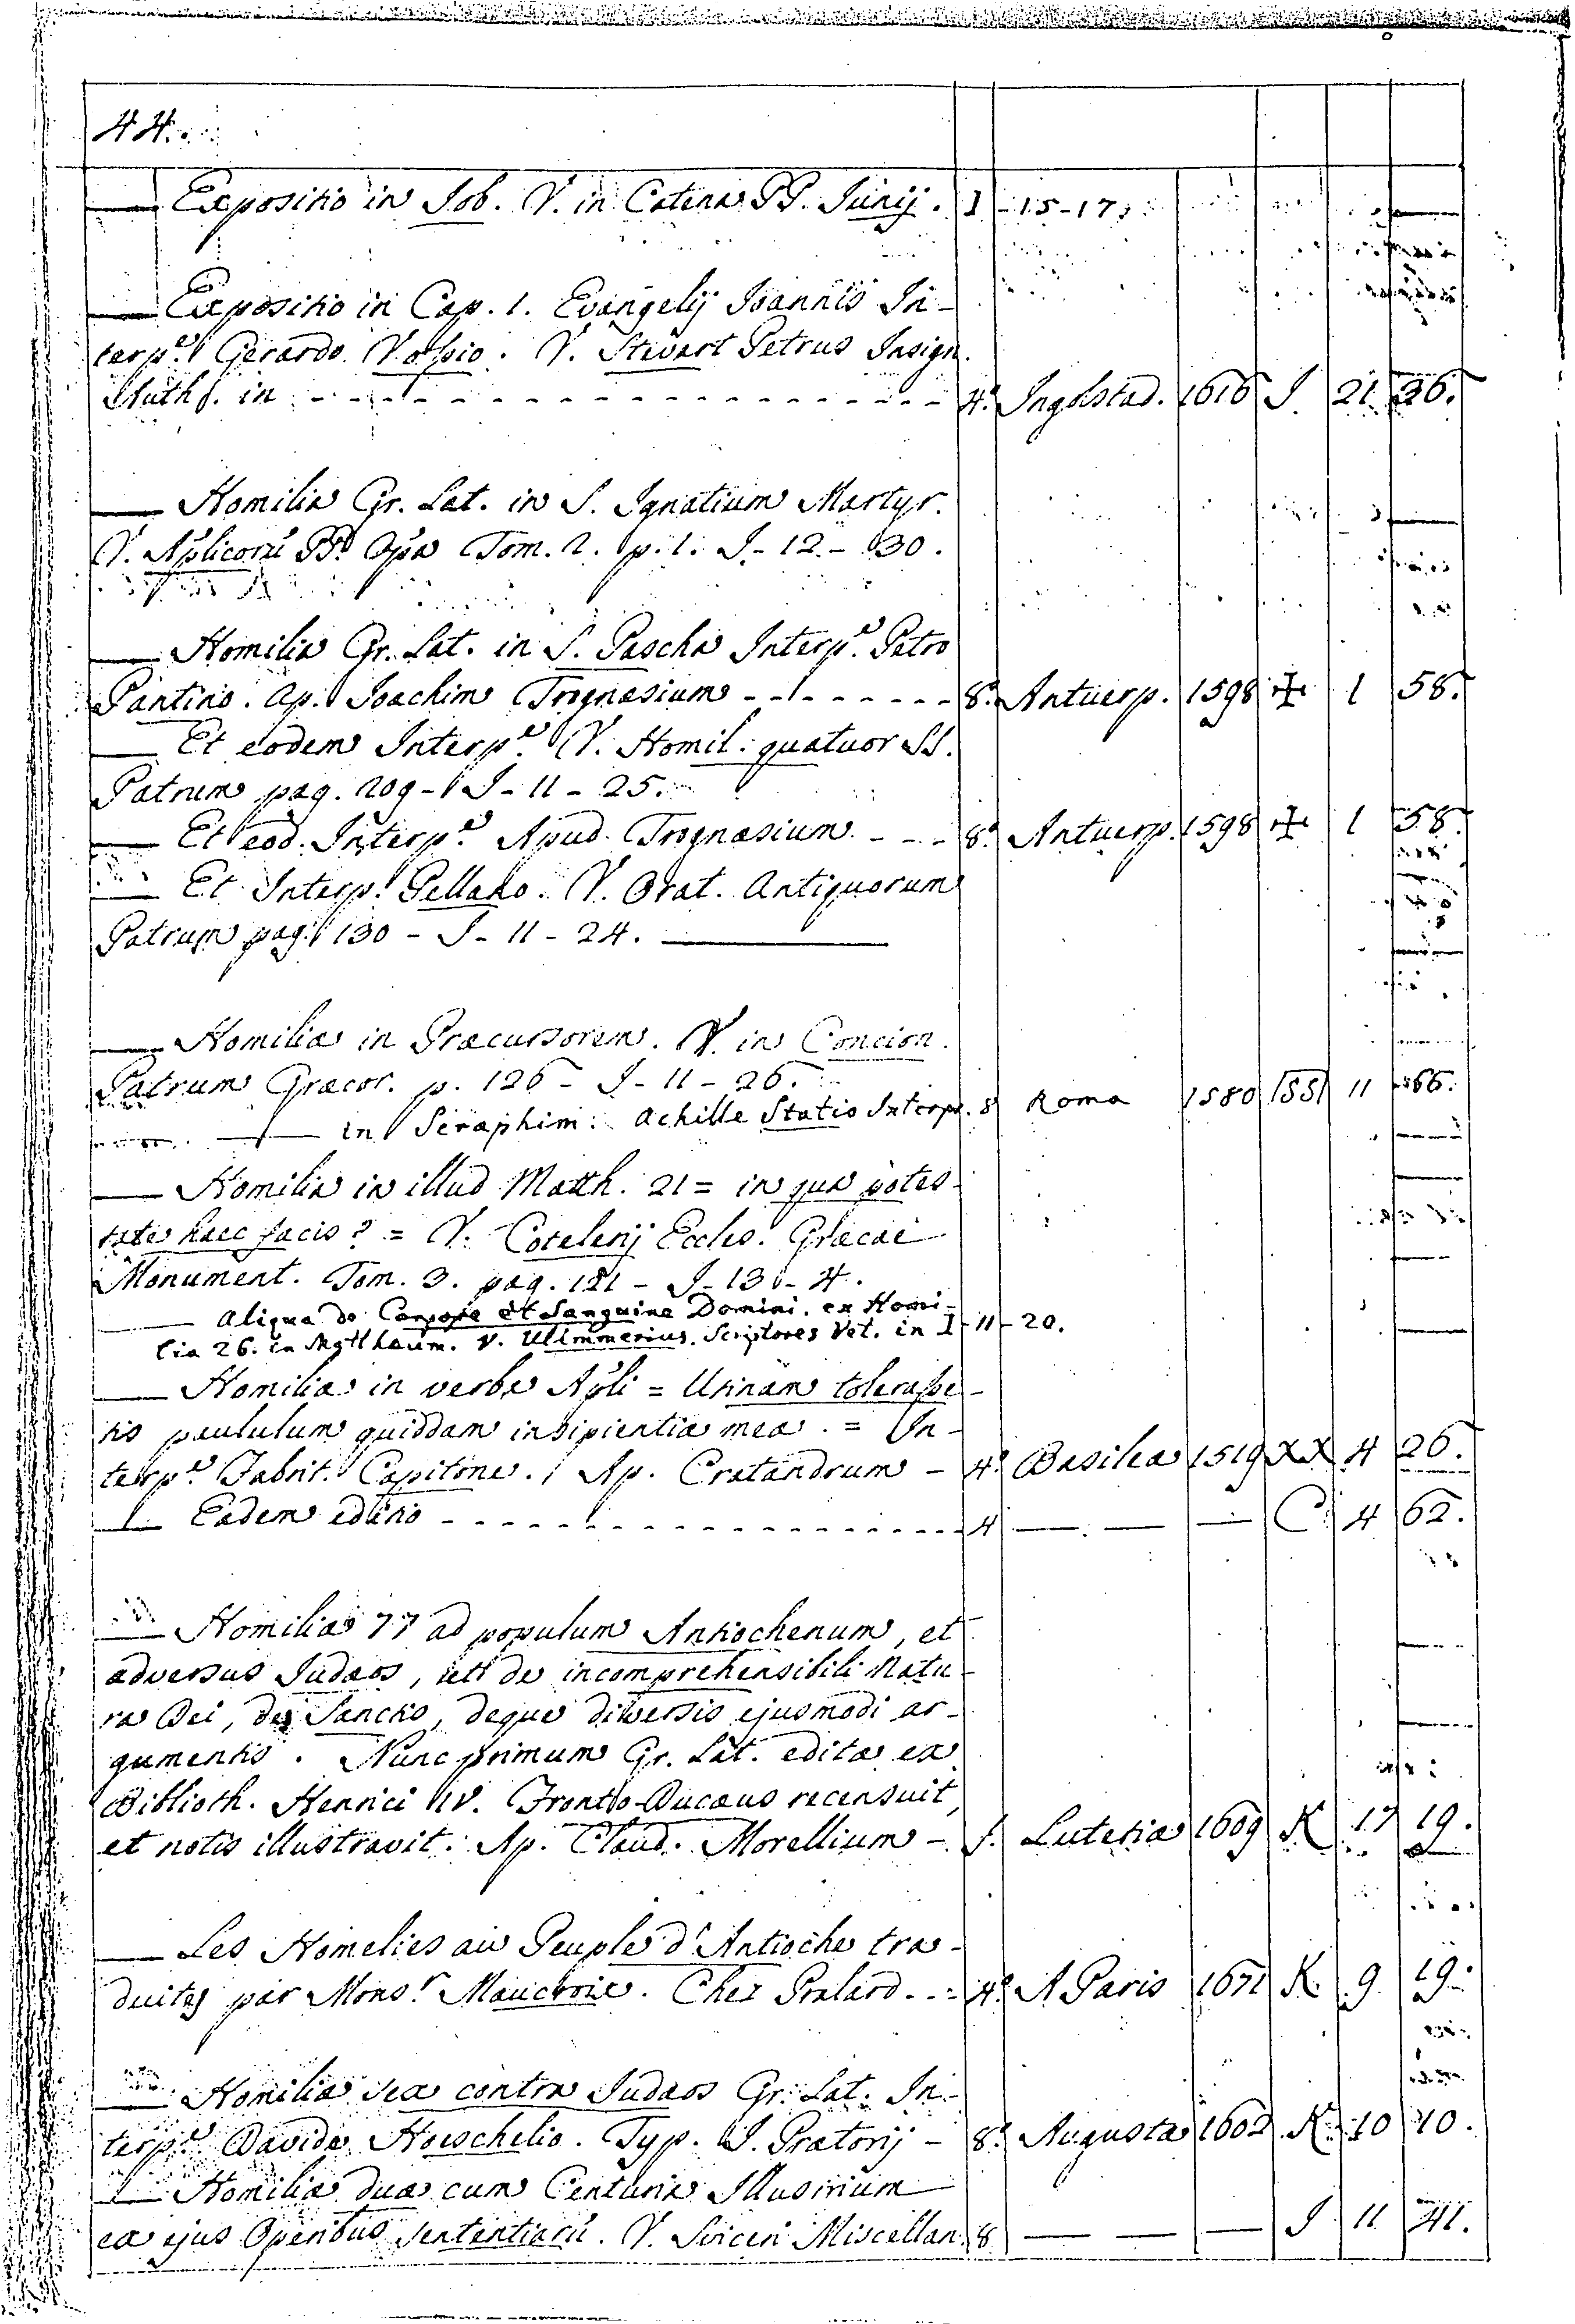 44.
— Expositio in Job. V. in Catena PP. Junij. I - 15 - 17.
— Expositio in Cap. 1. Evangelij Joannis In-
terp.e Gerardo Vossio. V. Stevart Petrus Insign.
Auth. in - - - 4.º Ingolstad. 1616 I 21 36.
— Homilia Gr. Lat. in S. Ignatium Martyr.
V. Aplicorũ PP. Opa Tom. 2. p. 1. I - 12 - 30.
— Homilia Gr. Lat. in S. Pascha Interp.e Petro
Pantino. Ap. Joachim Trognasium - - - 8.º Antuerp. 1598 ✠ 1 58.
— Et eodem Interp.e V. Homil. quatuor SS.
Patrum pag. 209 - I - 11 - 25.
— Et eod. Interp.e Apud Trognasium - - - 8.º Antuerp. 1598 ✠ 1 58.
— Et Interp. Pellano. V. Orat. Antiquorum
Patrum pag. 130 - I - 11 - 24. —
— Homilia in Præcursorem. V. in Concion.
Patrum Græcor. p. 126 - I - 11 - 26.
— in Seraphim: Achille Statio Interpr. 8 Roma 1580 155 11 66.
— Homilia in illud Matth. 21 = in qua potes-
tate hæc facis? = V. Cotelerij Eccles. Græcæ
Monument. Tom. 3. pag. 121 - I - 13 - 4.
— Aliqua de Corpore et Sanguine Domini. ex Homi-
lia 26. in Matthæum. V. Ulimmerius. Scriptores Vet. in I - 11 - 20.
— Homilia in verba Apli = Utinam tolerasse-
tis paululum quiddam insipientiæ meæ. = In-
terp.e Fabrit. Capitone. Ap. Cratandrum - 4.º Basilea 1519 XX 4 26.
— Eadem editio - - - 4 — — — C 4 62.
— Homiliæ 77 ad populum Antiochenum, et
adversus Judæos, uti de incomprehensibili Natu-
ra Dei, de Sanctis, deque diversis ejusmodi ar-
gumentis. Nunc primum Gr. Lat. editæ ex
Biblioth. Henrici IV. Fronto Ducæus recensuit,
et notis illustravit. Ap. Claud. Morellium - f. Lutetia 1609 K 17 19.
— Les Homelies au Peuple d'Antioche tra-
duites par Mons.r Maucroix. Chez Pralard - - 4.º A Paris 1671 K 9 19.
— Homiliæ sex contra Judæos Gr. Lat. In-
terp.e Davide Hoeschelio. Typ. I. Prætorij - 8.º Augusta 1602 K 10 10.
— Homiliæ duæ cum Centuria Illustrium
ex ejus Operibus Sententiarũ. V. Miscellan. 8 — — — I 11 41.